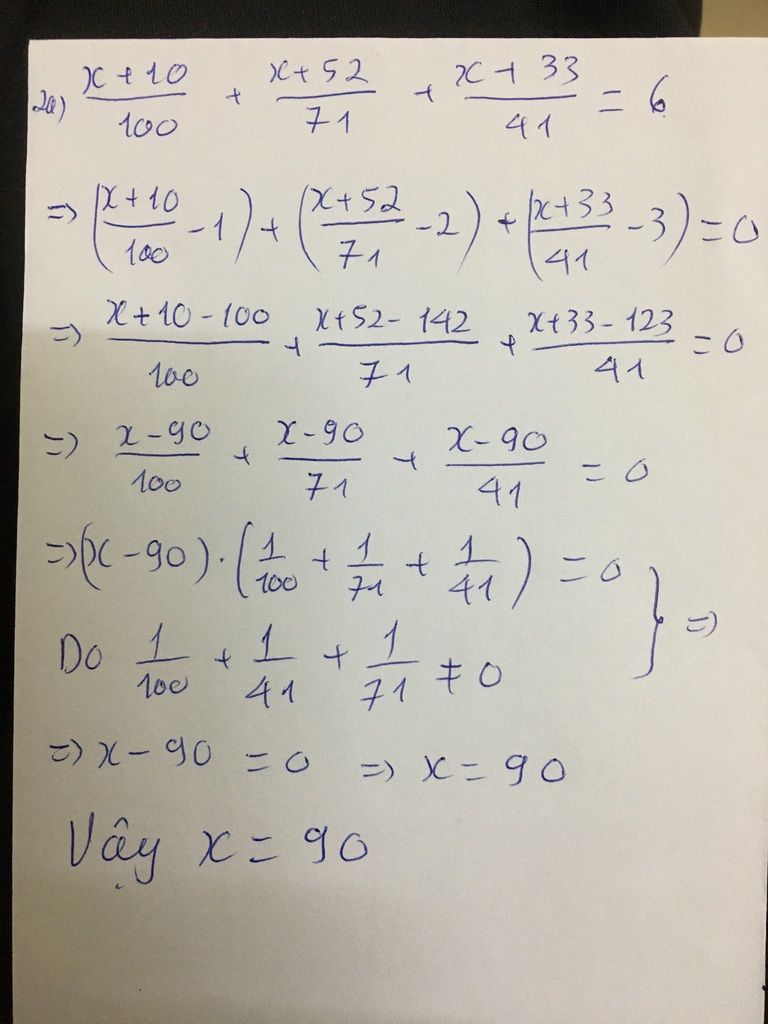 2a) \frac{x+10}{100} + \frac{x+52}{71} + \frac{x+33}{41} = 6
=> (\frac{x+10}{100} - 1) + (\frac{x+52}{71} - 2) + (\frac{x+33}{41} - 3) = 0
=> \frac{x+10-100}{100} + \frac{x+52-142}{71} + \frac{x+33-123}{41} = 0
=> \frac{x-90}{100} + \frac{x-90}{71} + \frac{x-90}{41} = 0
=> (x-90) \cdot (\frac{1}{100} + \frac{1}{71} + \frac{1}{41}) = 0 } =>
Do \frac{1}{100} + \frac{1}{41} + \frac{1}{71} ≠ 0
=> x - 90 = 0 => x = 90
Vậy x = 90